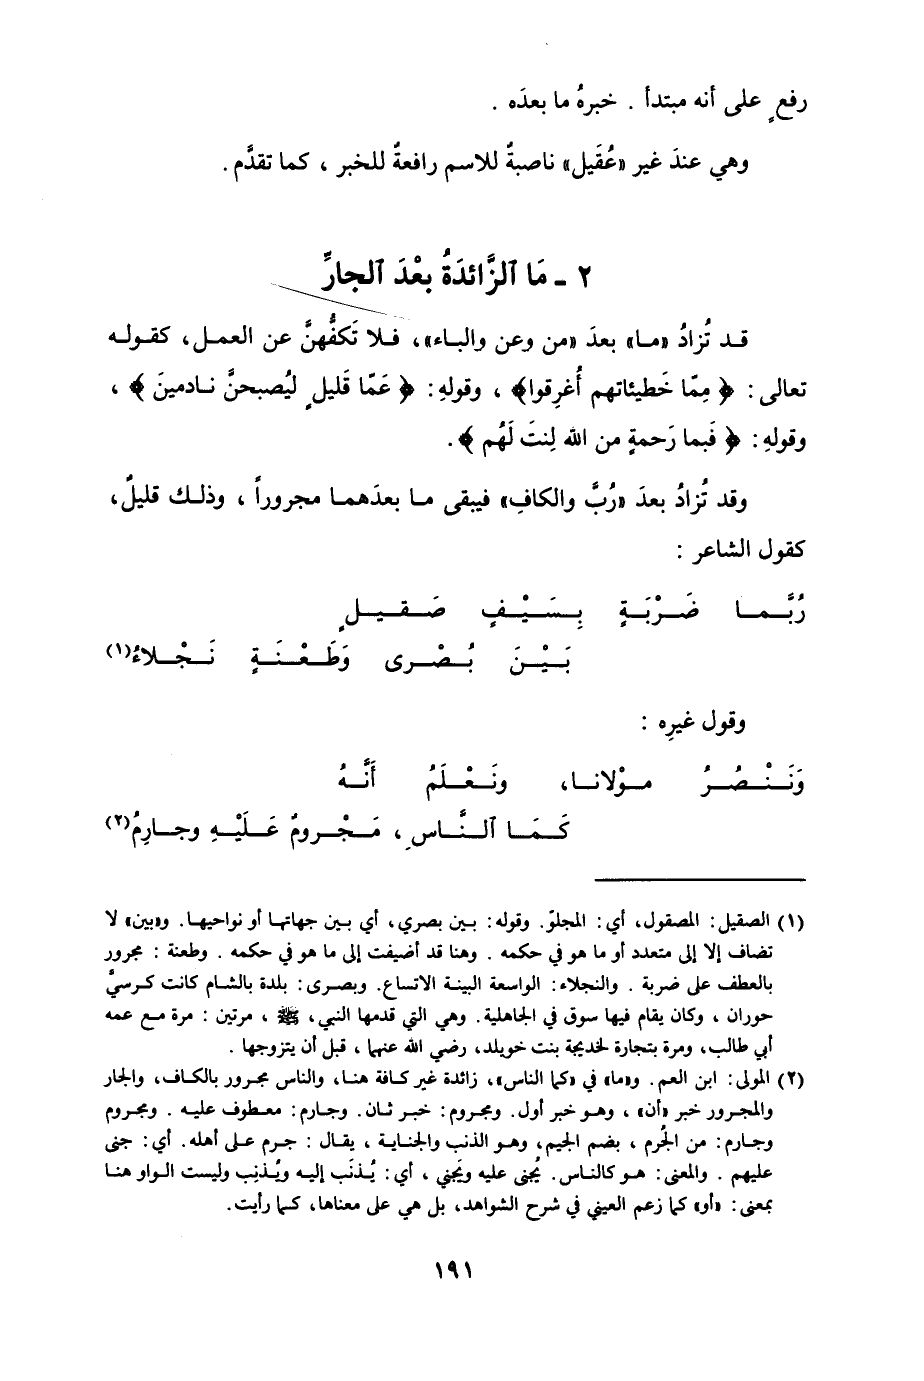 رفعٍ على أنه مبتدأ . خبرهُ ما بعدَه .
وهي عندَ غير «عُقَيل» ناصبةٌ للاسم رافعةٌ للخبر ، كما تقدَّم .
٢ ـ مَا ٱلزَّائدَةُ بعْدَ ٱلجارِّ
قـد تُزادُ «مـا» بعدَ «من وعن والباء» ، فـلا تَكفُّهنَّ عن العمـل ، كقـولـه
تعالى : ﴿ مِمّا خَطيئاتهم أُغرِقوا﴾ ، وقولهِ : ﴿ عَمّا قَليلٍ ليُصبحنَّ نـادمينَ ﴾ ،
وقولهِ : ﴿ فَبما رَحمةٍ من الله لِنتَ لَهُم ﴾ .
وقد تُزادُ بعدَ «رُبَّ والكافِ» فيبقى مـا بعدَهمـا مجروراً ، وذلـك قليلٌ ،
كقول الشاعر :
رُبَّـمـا ضَـرْبَـةٍ بِـسَـيْـفٍ صَـقـيـلٍ
بَـيْـنَ بُـصْـرى وَطَـعْـنَـةٍ نَـجْـلاءُ(١)
وقول غيرِه :
وَنَـنْـصُـرُ مـوْلانـا، ونَـعْـلَمُ أنَّـهُ
كَـمَـا ٱلـنَّـاسِ ، مَـجْـرومٌ عَـلَـيْـهِ وجـارِمُ(٢)
(١) الصقيل : المصقول ، أي : المجلوّ . وقوله : بين بصري ، أي بـين جهاتهـا أو نواحيهـا . و«بين» لا
تضاف إلا إلى متعدد أو ما هو في حكمه . وهنا قد أضيفت إلى ما هو في حكمه . وطعنة : مجرور
بالعطف على ضربة . والنجلاء : الواسعة البينـة الاتسـاع . وبصـرى : بلدة بالشـام كانت كـرسيَّ
حوران ، وكان يقام فيها سوق في الجاهلية . وهي التي قدمها النبي ، ﷺ ، مرتين : مرة مـع عمه
أبي طالب ، ومرة بتجارة لخديجة بنت خويلد ، رضي الله عنهـا ، قبل أن يتزوجها .
(٢) المولى : ابن العم . و«ما» في «كما الناس» ، زائدة غير كـافة هنـا ، والناس مجـرور بالكـاف ، والجار
والمجـرور خبر «أن» ، وهـو خبر أول . ومجـروم : خبر ثـان . وجـارم : معـطوف عليـه . ومجـروم
وجـارم : من الجُرم ، بضم الجيم ، وهـو الذنب والجنـايـة ، يقـال : جـرم عـلى أهله . أي : جنى
عليهم . والمعنى : هـو كالناس . يُجنى عليه ويَجني ، أي : يُـذنَب إليه ويُـذنِب وليست الـواو هنـا
بمعنى : «أو» كما زعم العيني في شرح الشواهد ، بل هي على معناها ، كـما رأيت .
١٩١